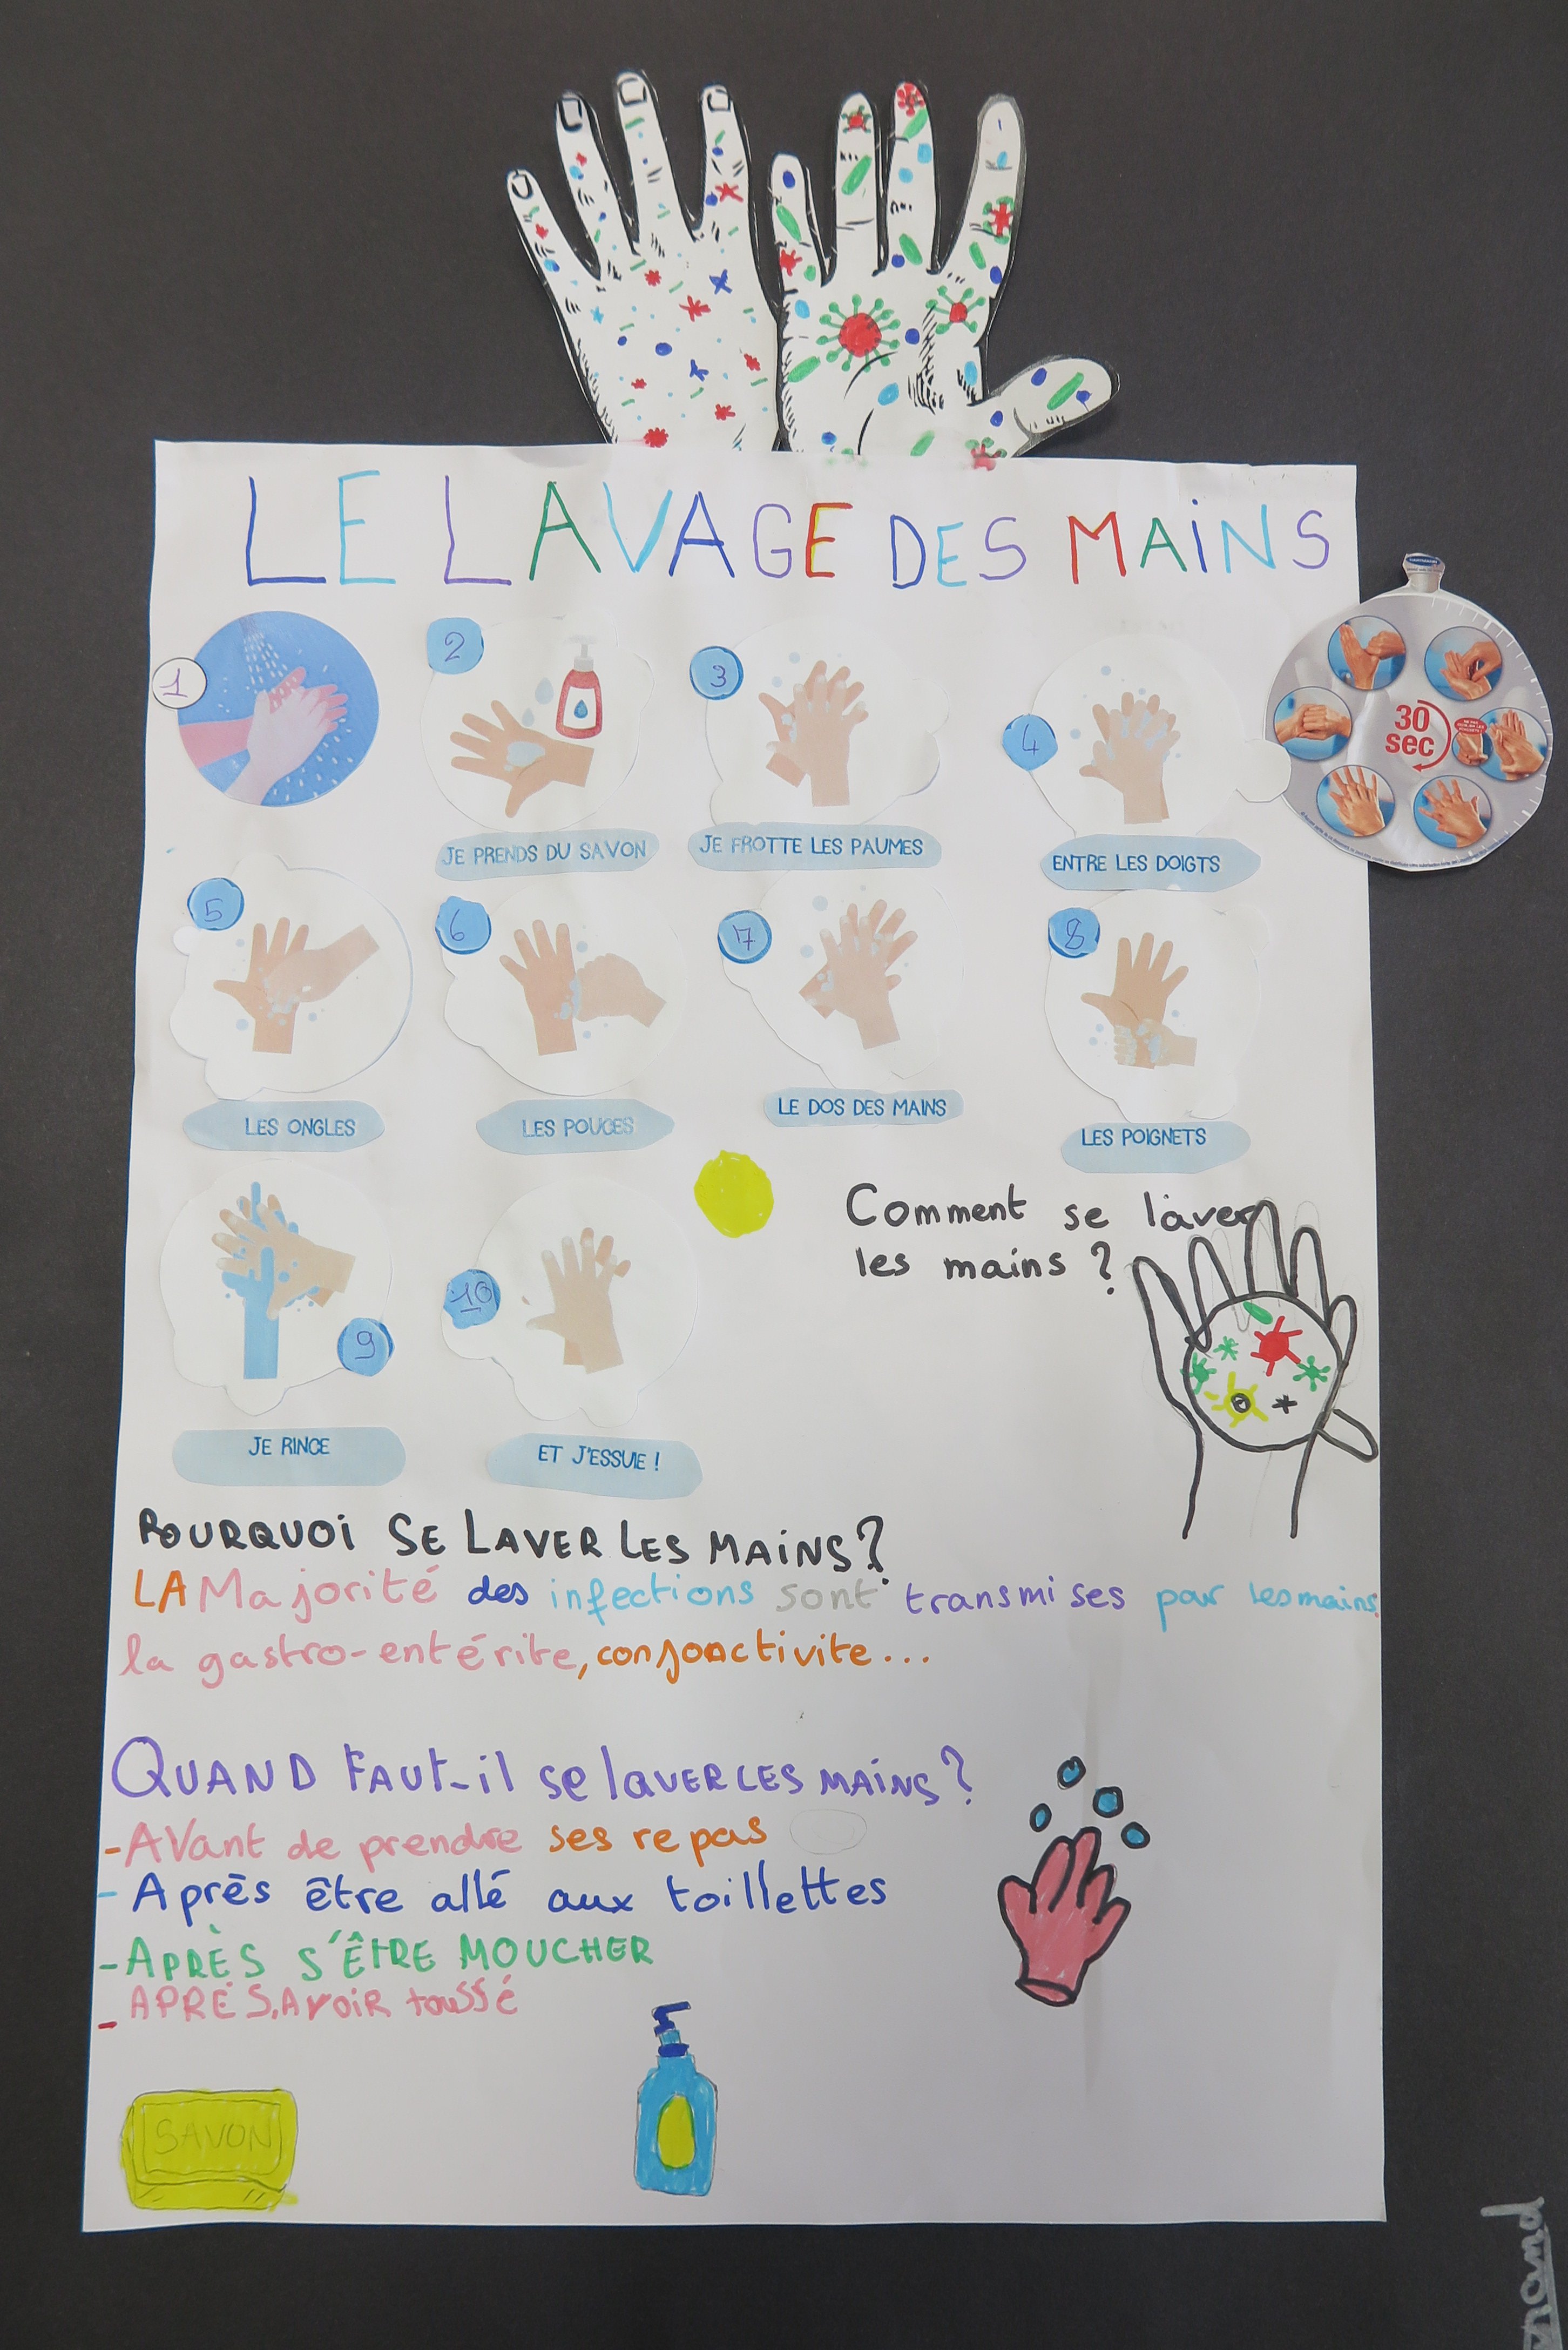 LE LAVAGE DES MAINS
1
2
3
4
30
sec
JE PRENDS DU SAVON
JE FROTTE LES PAUMES
ENTRE LES DOIGTS
5
6
7
8
LES ONGLES
LES POUCES
LE DOS DES MAINS
LES POIGNETS
Comment se laver
les mains ?
9
10
JE RINCE
ET J'ESSUIE !
POURQUOI SE LAVER LES MAINS?
LA Majorité des infections sont transmises par les mains.
la gastro-entérite, conjonctivite...
QUAND FAUT-il se laVER LES MAINS?
- AVant de prendre ses repas
- Après être allé aux toillettes
- APRÈS S'ÊTRE MOUCHER
- APRÈS, AVOIR toussé
SAVON